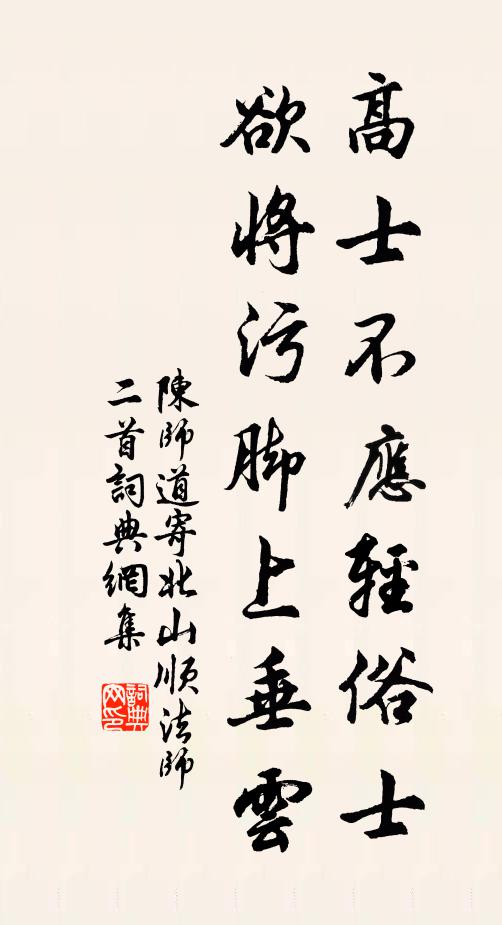 高士不應輕俗士
欲將污脚上垂雲
陳師道寄北山順法師
二首詞典網集
詞典网印